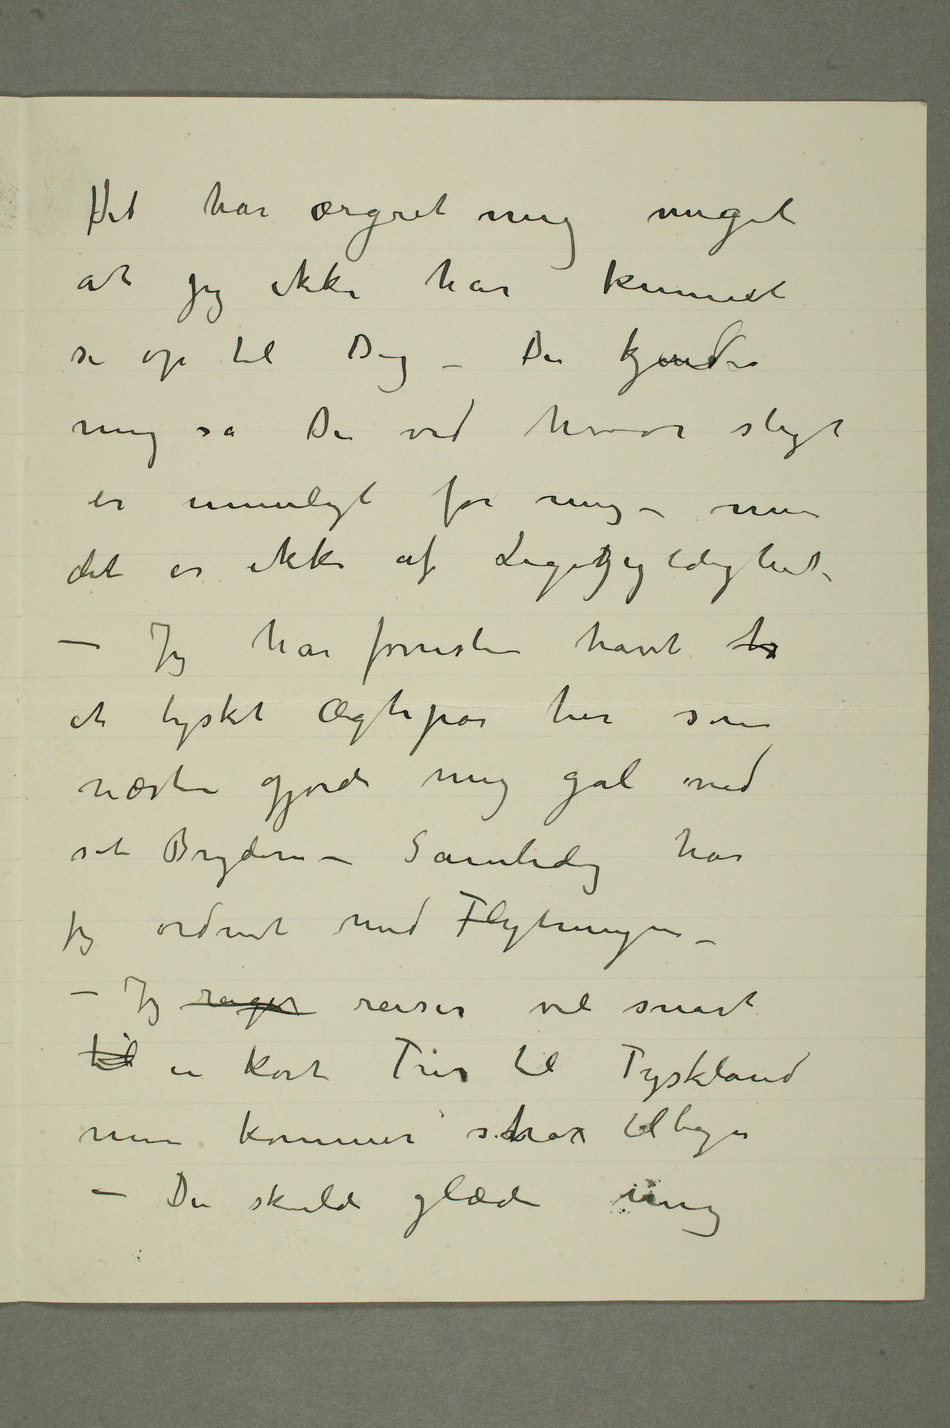 Det har ærgret mig meget
at jeg ikke har kunnet
se op til Dig – Du kjender
mig så Du ved hvor sligt
er umuligt for mig – men
det er ikke af Ligegyldighed.
– Jeg har forresten havt to
et tyskt Ægtepar her som
næsten gjorde mig gal med
sit Bryderi – Samtidig har
jeg ordnet med Flytningen –
– Jeg rager reiser vel snart
til en kort Tur til Tyskland
men kommer strax tilbage
– Du skulde glæde mig